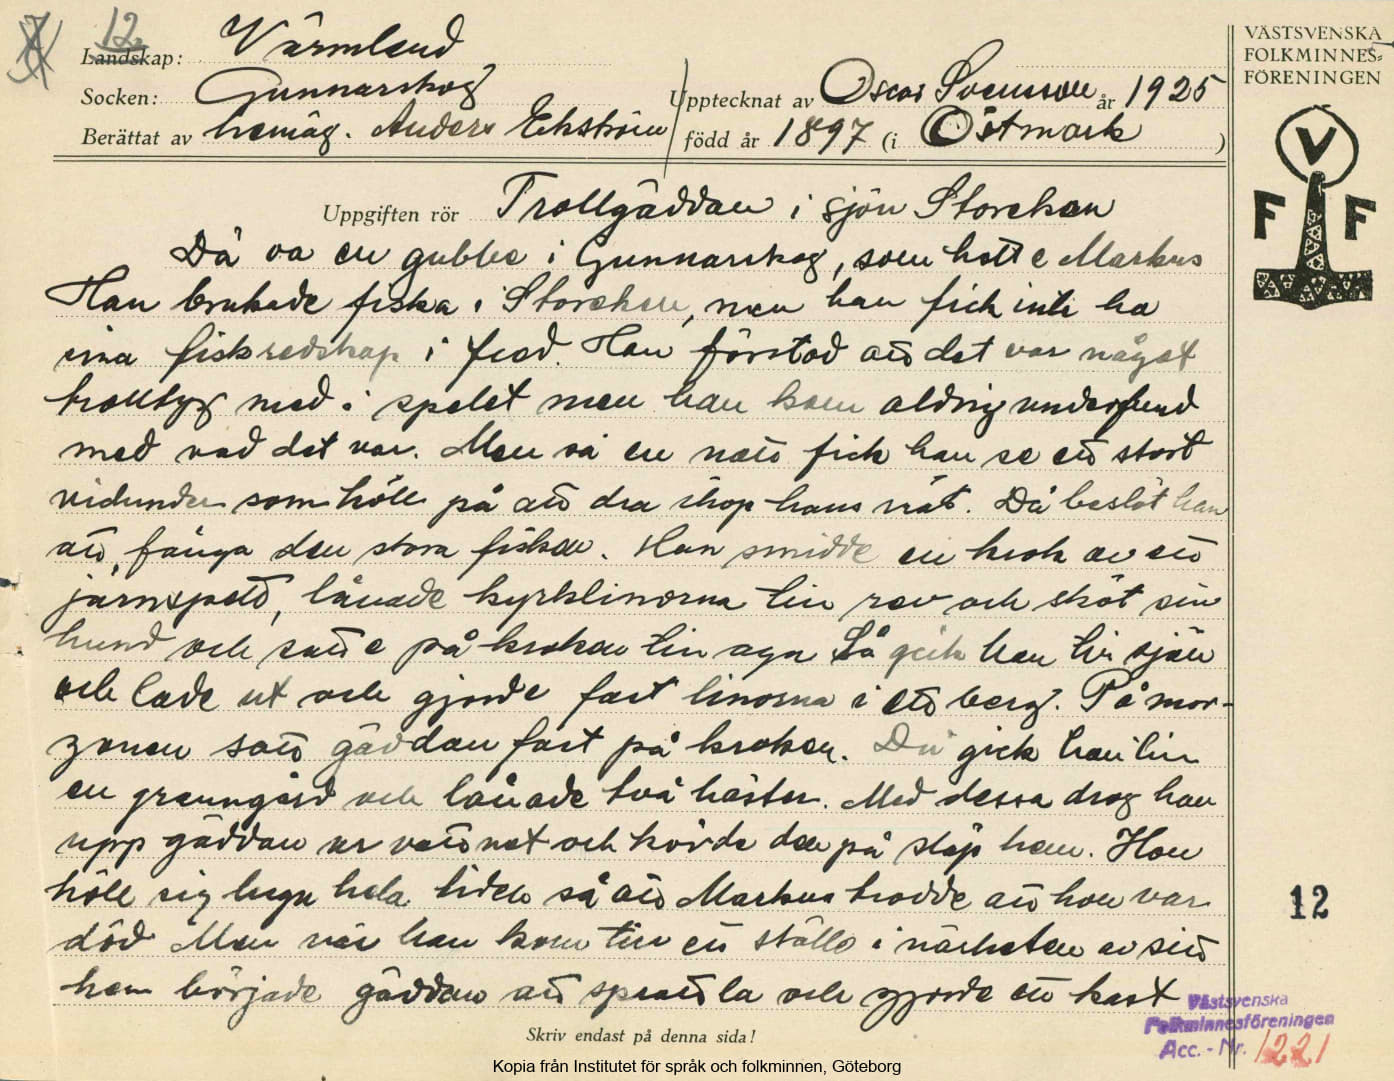 12.
Landskap: Värmland
Socken: Gunnarskog
Berättat av hemäg. Anders Ekström
Upptecknat av Oscar Svensson år 1925
född år 1897 (i Östmark )
VÄSTSVENSKA
FOLKMINNES=
FÖRENINGEN
V
F F
Uppgiften rör Trollgäddan i sjön Storeken
Då va en gubbe i Gunnarskog, som hette Markus
Han brukade fiska i Storeken, men han fick inte ha
sina fiskredskap i fred. Han förstod att det var något
trolltyg med i spelet men han kom aldrig underfund
med vad det var. Men så en natt fick han se ett stort
vidunder som höll på att dra ihop hans nät. Då beslöt han
att fånga den stora fisken. Han smidde en krok av ett
järnspett, lånade kyrklinorna till rev och sköt sin
hund och satte på kroken till agn Så gick han till sjön
och lade ut och gjorde fast linorna i ett berg. På mor-
gonen satt gäddan fast på kroken. Då gick han till
en granngård och lånade två hästar. Med dessa drog han
upp gäddan ur vattnet och körde den på släp hem. Hon
höll sig lugn hela tiden så att Markus trodde att hon var
död Men när han kom till ett ställe i närheten av sitt
hem började gäddan att sprattla och gjorde ett kast
Skriv endast på denna sida!
12
Västsvenska
Folkminnesföreningen
Acc. - Nr. 1221
Kopia från Institutet för språk och folkminnen, Göteborg